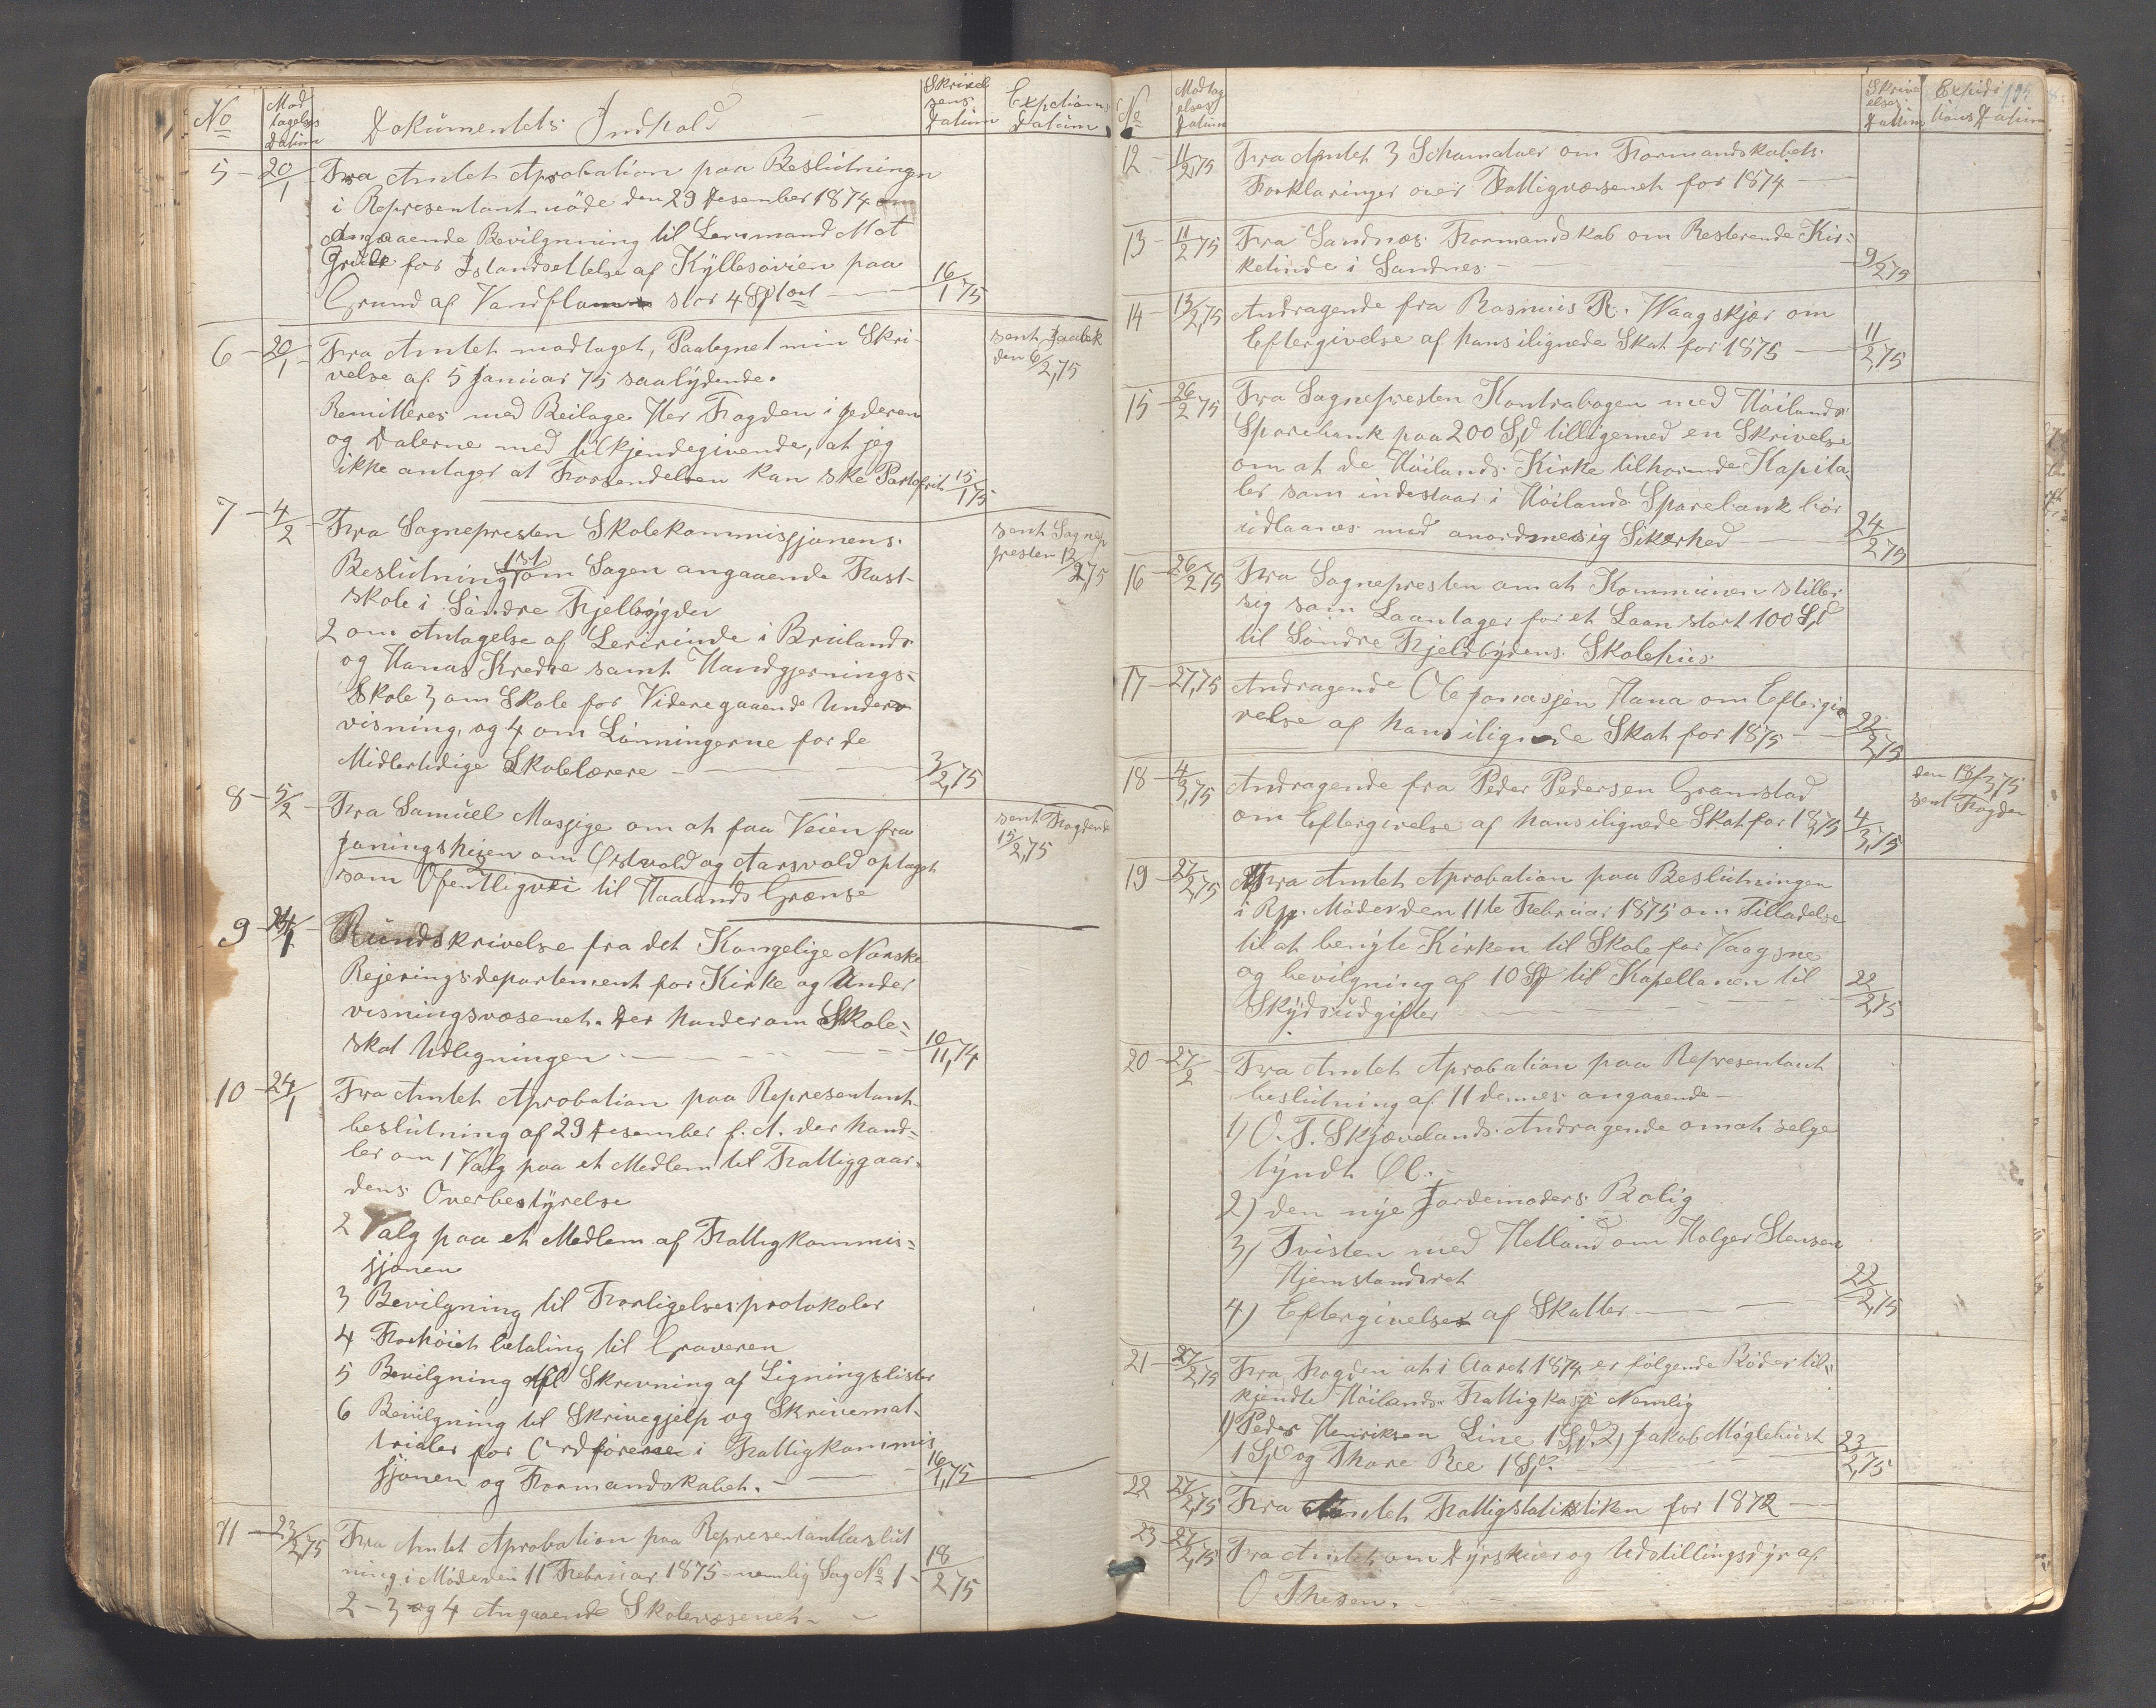 No
Mod
tagelses
Datum
Dokumentets Indhold
Skrivel
sens
Datum
Expetions
Datum
5 - 20/1 - Fra Amtet Aprobation paa Beslutningen
i Representantmöde den 29 Desember 1874
Angaaende Bevilgnning til Lensmand
Grude for Istandsettelse af paa
Grund af stor 4 Spd 16/1 75
6 - 20/1 - Fra Amtet modtaget, Paategnet min Skri-
velse af 5 Januar 75 saalydende.
Remitteres med Beilage Her Fogden i Jederen
og Dalerne med tilkjendegivende, at jeg
ikke antager at Forsendelsen kan ske Portofrit 15/1 75
sent
den 6/2,75
7 - 4/2 - Fra Sognepresten Skolekommissjonens
Beslutning 1st om Sagen angaaende Fast-
skole i Söndre Fjellbygder
2 om Antagelse af Lererinde i Bruilands
og Hanas Kredse samt Haandgjernings-
Skole 3 om Skole for Videregaaende Under
visning, og 4 om Lönningerne for de
Midlertidige Skolelærere - 3/2,75
sent Sognep
presten 12/2 75
8 - 5/2 - Fra Samuel Massige om at faa Veien fra
Joningsheien om Østvold og Aarsvold optaget
som Ofentligvei til Haalands Grænse
sent Fogden
15/2,75
9 - 24/1 Rundskrivelse fra det Kongelige Norske
Rejeringsdepartement for Kirke og Under
visningsvæsenet. Der handler om Skole-
skat Udligningen - 10/11,74
10 - 24/1 Fra Amtet Aprobation paa Representant-
beslutning af 29 Desember f. A. der hand-
ler om 1 Valg paa et Medlem til Fattiggaar-
dens Overbestyrelse
2 Valg paa et Medlem af Fattigkommis-
sjonen
3 Bevilgning til Forligelsesprotokoler
4 Forhöiet betaling til Graveren
5 Bevilgning til Skrivning af Ligningslister
6 Bevilgning til Skrivegjelp og Skrivemat-
trialer for Ordförerne i Fattigkommis
sjonen og Formandskabet. - 16/1,75
11 - 23/2,75 Fra Amtet Aprobation paa Representantbeslut
ning i Mödet den 11 Februar 1875 - nemlig Sag No 1 - 18/2 75
2 - 3 og 4 Angaaende Skolevæsenet -
No
Modtag
elses
Datum
Skrive
elses
Datum
Expidi
tions Datum
12 - 11/2,75 Fra Amtet 3 Schamatuer om Formandskabets
Forklaringer over Fattigvæsenet for 1874
13 - 11/2 75 Fra Sandnæs Formandskab om Resterende Kir-
ketiende i Sandnes - 9/2 75
14 - 13/2,75 Andragende fra Rasmus R. Waagskjær om
Eftergivelse af hans ilignede Skat for 1875 - 11/2,75
15 - 26/2 75 Fra Sognepresten Kontrabogen med Höilands
Sparebank paa 200 Spd tilligemed en Skrivelse
om at de Höilands Kirke tilhorende Kapita-
ler som indestaar i Höilands Sparebank bör
udlaanes med anordmesig Sikerhed - 24/2 75
16 - 26/2 75 Fra Sognepresten om at Kommunen stiller
sig som Laantager for et Laan stort 100 Spd
til Söndre Fjeldbydens Skolehus
17 - 27,75 Andragende Ole Jonassen Hana om Eftergiv
velse af hans ilignede Skat for 1875 - 22/2,75
18 - 4/3,75 Andragende fra Peder Pedersen Gramstad
om Eftergivelse af hans ilignede Skat for 1875 4/3,75
den 18/3,75
sent Fogden
19 - 27/2,75 Fra Amtet Aprobation paa Beslutningen
i Rp. Möde den 11te Februar 1875 om Tilladelse
til at benyte Kirken til Skole for Vaagsne
og bevilgning af 10 Sp til Kapellanen til
Skydsudgifter - 22/2,75
20 - 27/2 - Fra Amtet Aprobation paa Representant
beslutning af 11 dennes angaaende -
1) O. T. Skjævelands Andragende om at selge
tyndt Øl.
2) den nye Jordemoders Bolig
3) Tvisten med Hetland om Holger Stensen
Hjemstandsret 22/2,75
4) Eftergivelse af Skatter
21 - 27/2,75 Fra Fogden at i Aaret 1874 er følgende Böder til-
kjendte Höilands Fattigkasse Nemlig
1) Peder Henriksen Line 1 Spd. 2) Jakob
1 Spd og Thore Ree 1 Sp. - 23/2,75
22 27/2,75 Fra Amtet Fattigstatistiken for 1872
23 - 27/2,75 Fra Amtet om Dyrskuer og Udstillingsdyr af
O Thesen.